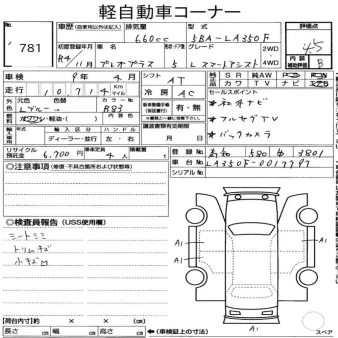 軽自動車コーナー
781
車歴 (自家用以外は記入)
排気量
660cc
型式
5BA-LA350F
評価点
4.5
初度登録年月
R4/11
車名
プレオプラス
ドア
5
グレード
L スマートアシスト
2WD
4WD
内装
B
車検 9年 4月
シフト
AT
走行 10,714 km
冷房
AC
SR 純AW PS
革 カワ TV ナビ エアB
セールスポイント
・社外ナビ
・フルセグTV
・バックカメラ
外元色
色替
カラーNo.
Lブルー
R83
有・無
ガソリン・軽油・( )
譲渡書類有効期限
年 月 日
輸入区分
ハンドル
ディーラー・並行
左・右
リサイクル預託金 6,700円
乗車定員
4人
積載量
t
登録No. 高知 580 せ 3801
車台No. LA350F-0017797
シリアルNo.
◎注意事項 (修復・不具合箇所および状態等)
◎検査員報告 (USS使用欄)
シートシミ
トリムキズ
小キズ凹
A1
A1
A1
A1
【荷台内寸】約 × × (cm)
長さ cm 幅 cm 高さ cm
(車検証上の寸法)
スペア